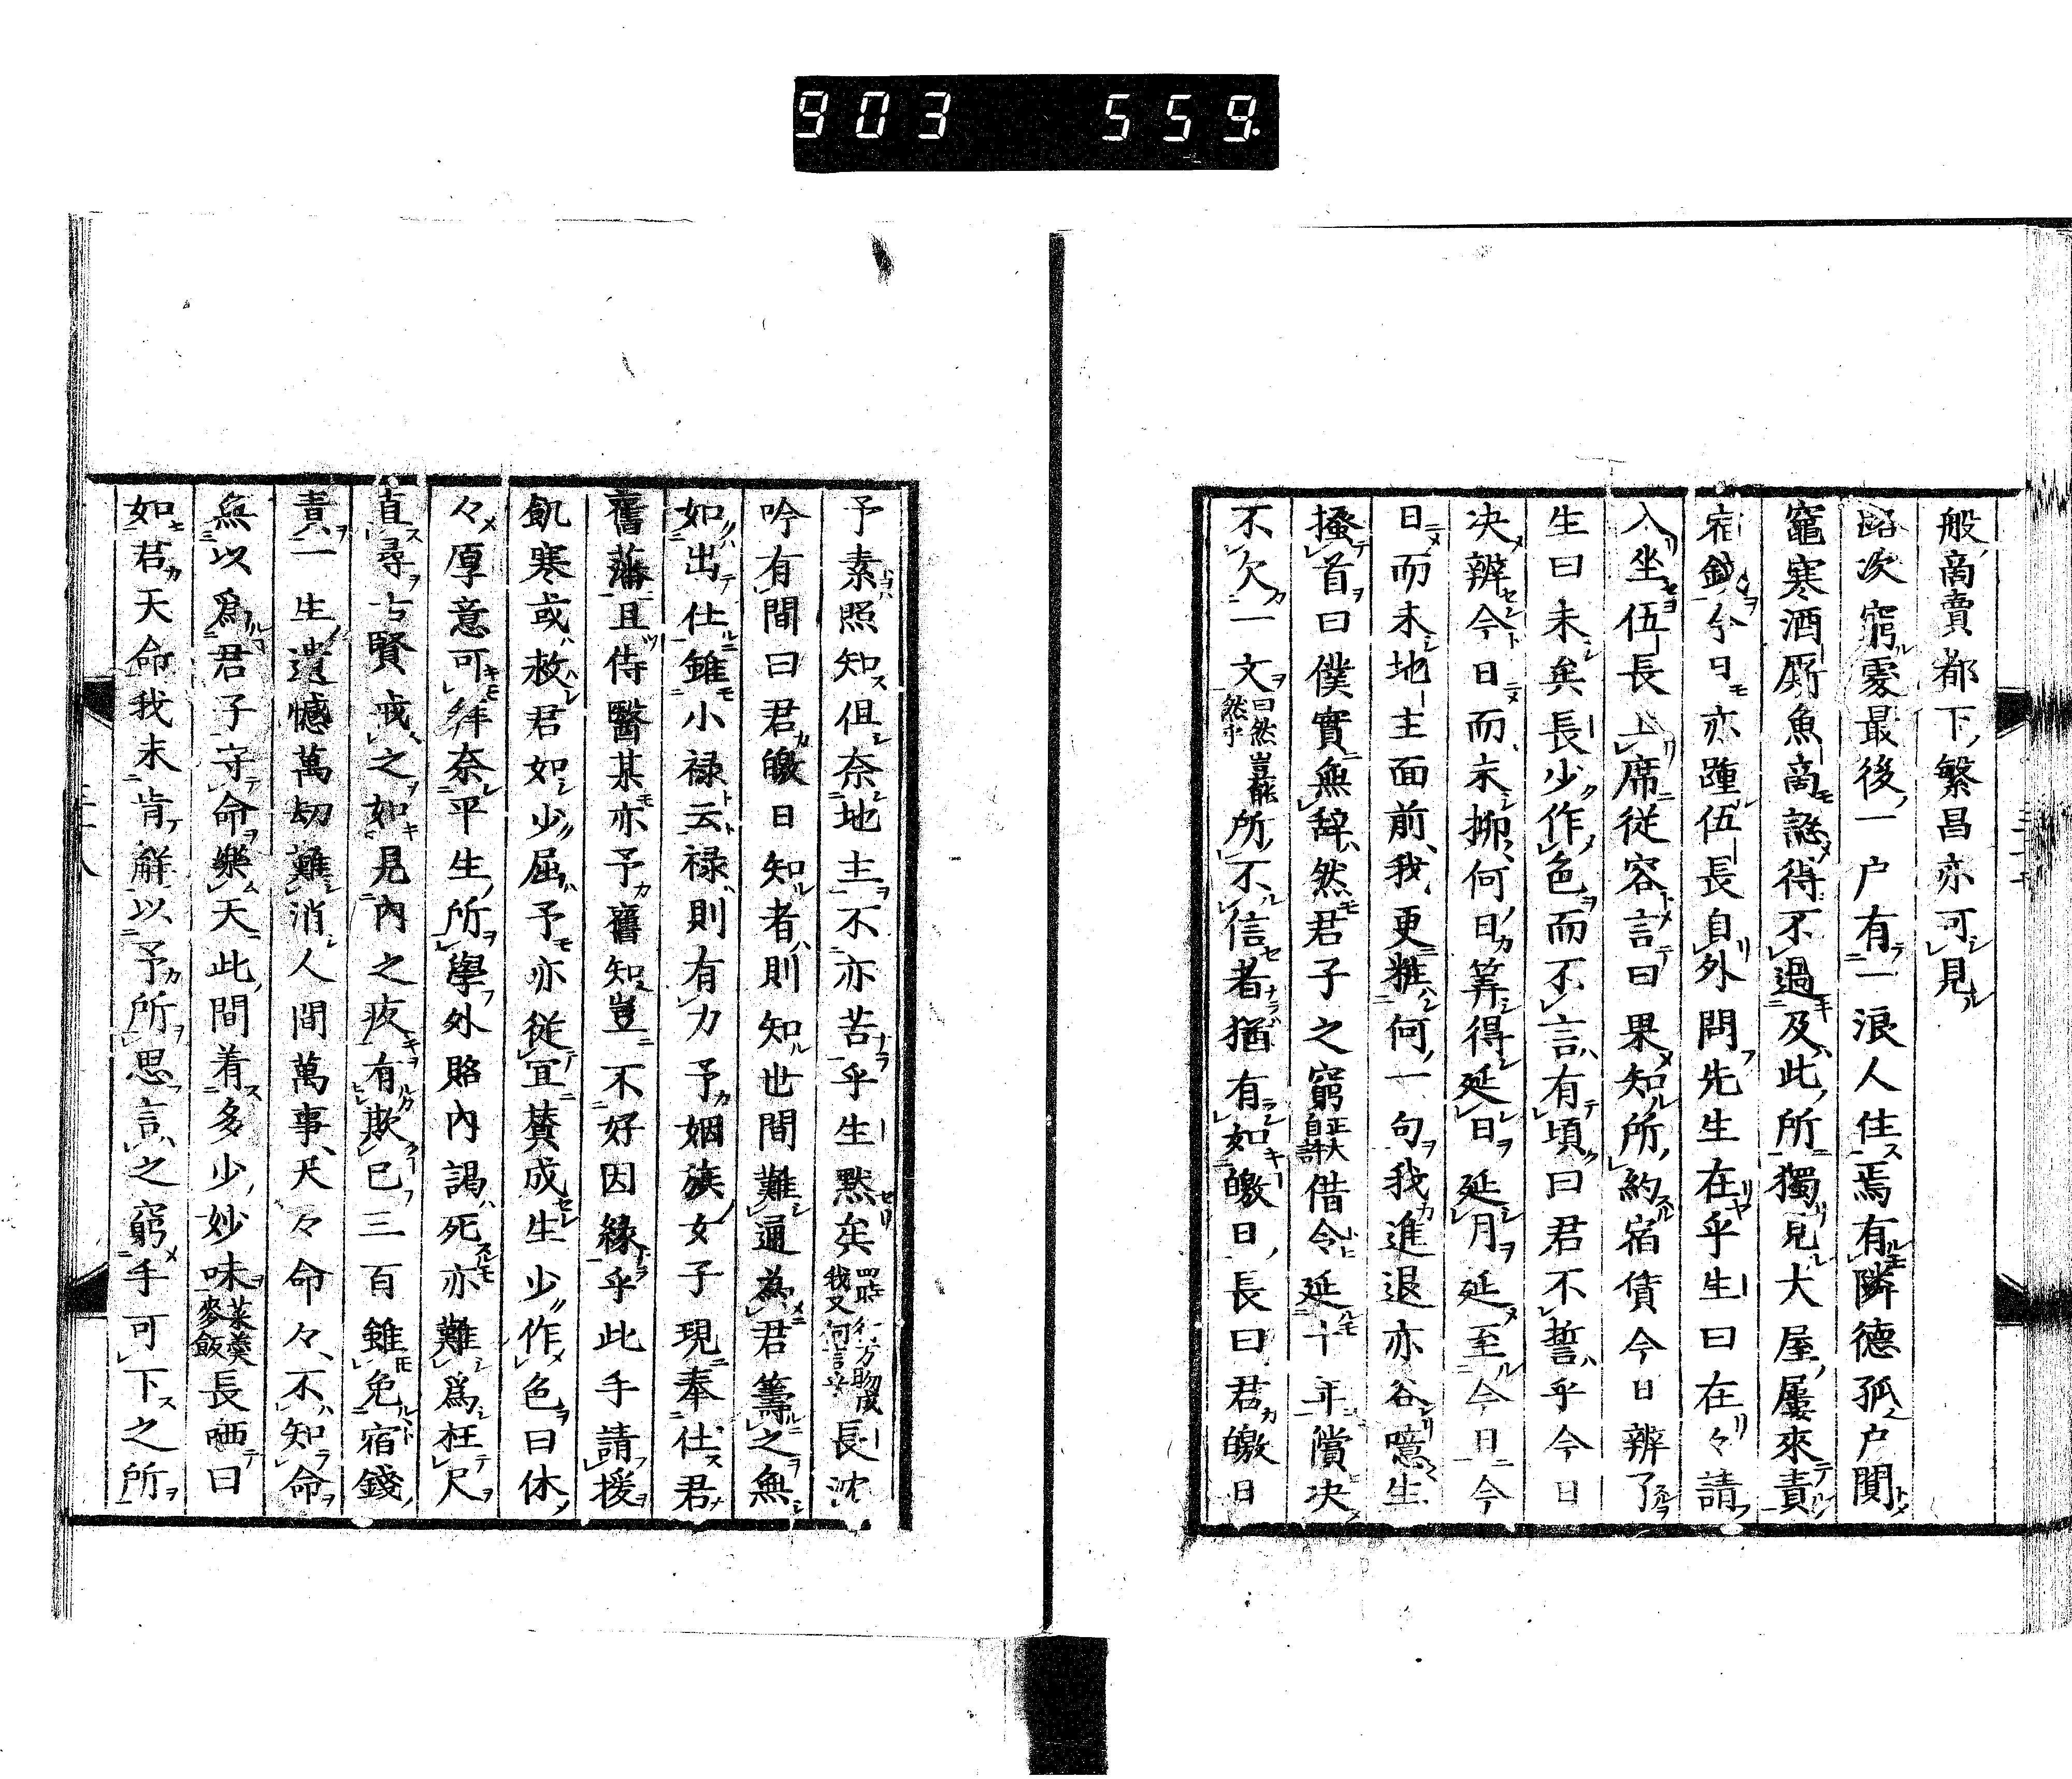 903 559.
般商賣都下繁昌亦可見
路次窮處最後一戸有一浪人住焉有隣德孤戸閴
竈寒酒厮魚商認得不過及此所獨見大屋屢來責
宿錢今日亦踵伍長自外問先生在乎生曰在々請
入坐伍長上席從容言曰果知所約宿債今日辨了
生曰未矣長少作色而不言有頃曰君不誓乎今日
决辨今日而未抑何日筭得延日延月延至今日今
日而未地主面前我更粧何一句我進退亦谷噫生
搔首曰僕實無辞然君子之窮正大自許借令延十年償决
不欠一文曰然豈能然乎所不信者猶有如皦日長曰君皦日
予素照知但奈地主不亦苦乎生默矣四時行百物成我又何言哉長沈
吟有間曰君皦日知者則知世間難通為君籌之無
如出仕雖小禄云禄則有力予姻族女子現奉仕君
舊藩且侍醫某亦予舊知豈不好因緣乎此手請援
飢寒或救君如少屈予亦從宜賛成生少作色曰休
々厚意可拜奈平生所學外賂內謁死亦難爲枉尺
直尋古賢戒之如見內之疚有欺已三百雖免宿錢
責一生遺憾萬劫難消人間萬事天々命々不知命
無以爲君子守命樂天此間着多少妙味菜羹麥飯長哂曰
如君天命我未肯解以予所思言之窮手可下之所